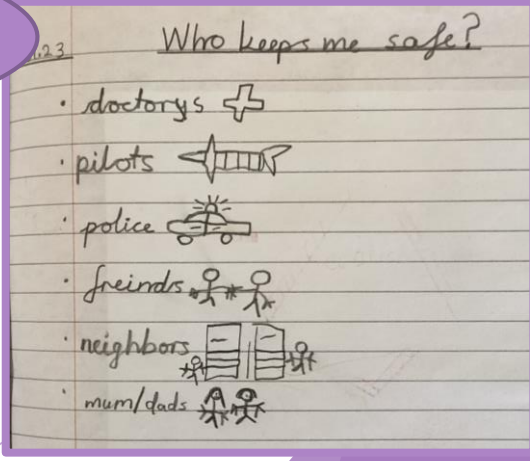 .23
Who keeps me safe?
· doctorys
· pilots
· police
· freinds
· neighbors
· mum/dads